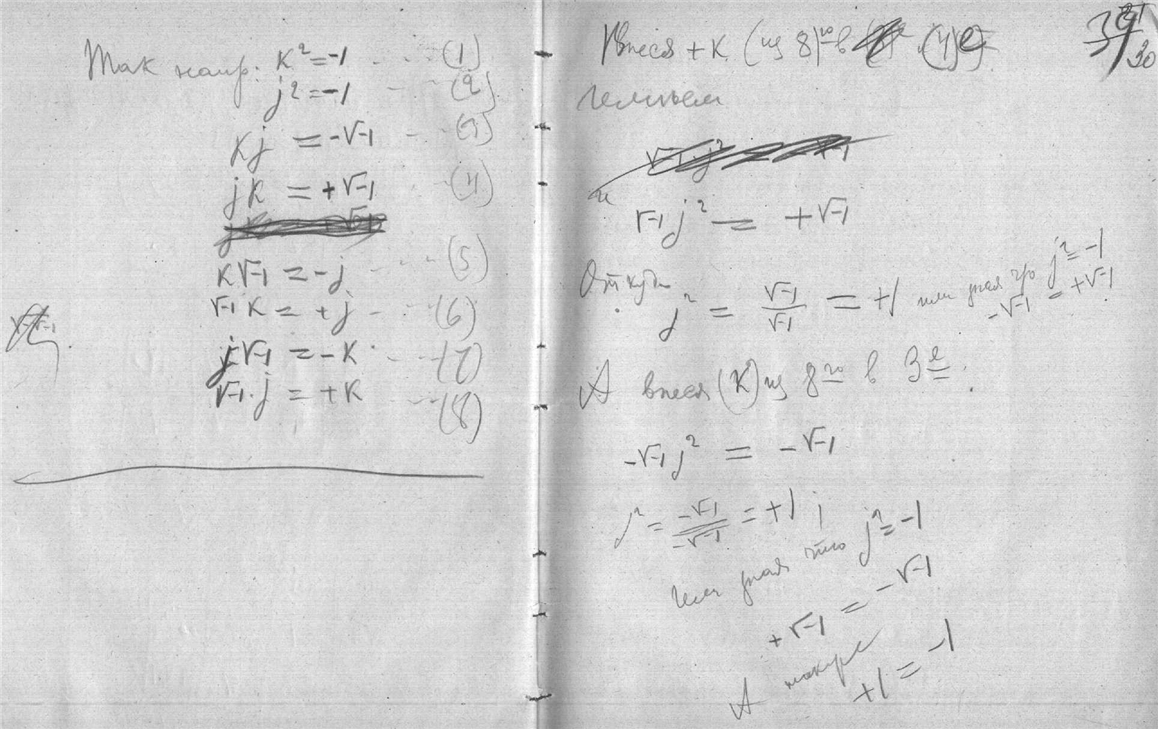 Так напр. K² = -1 - - (1)
j² = -1 - - (2)
Kj = -√-1 - - - (3)
jK = +√-1 - - (4)
K√-1 = -j - - - (5)
√-1 K = +j - - (6)
j√-1 = -K - - - (7)
√-1 j = +K - - - (8)
Внеся + K (из 8)го в (4)е
и
√-1 j² = +√-1
Откуда
j² = √-1/√-1 = +1 или зная что j² = -1
-√-1 = +√-1
А внеся (K) из 8го в 3е.
-√-1 j² = -√-1
j² = -√-1/-√-1 = +1 ;
или зная что j² = -1
+√-1 = -√-1
А также
+1 = -1